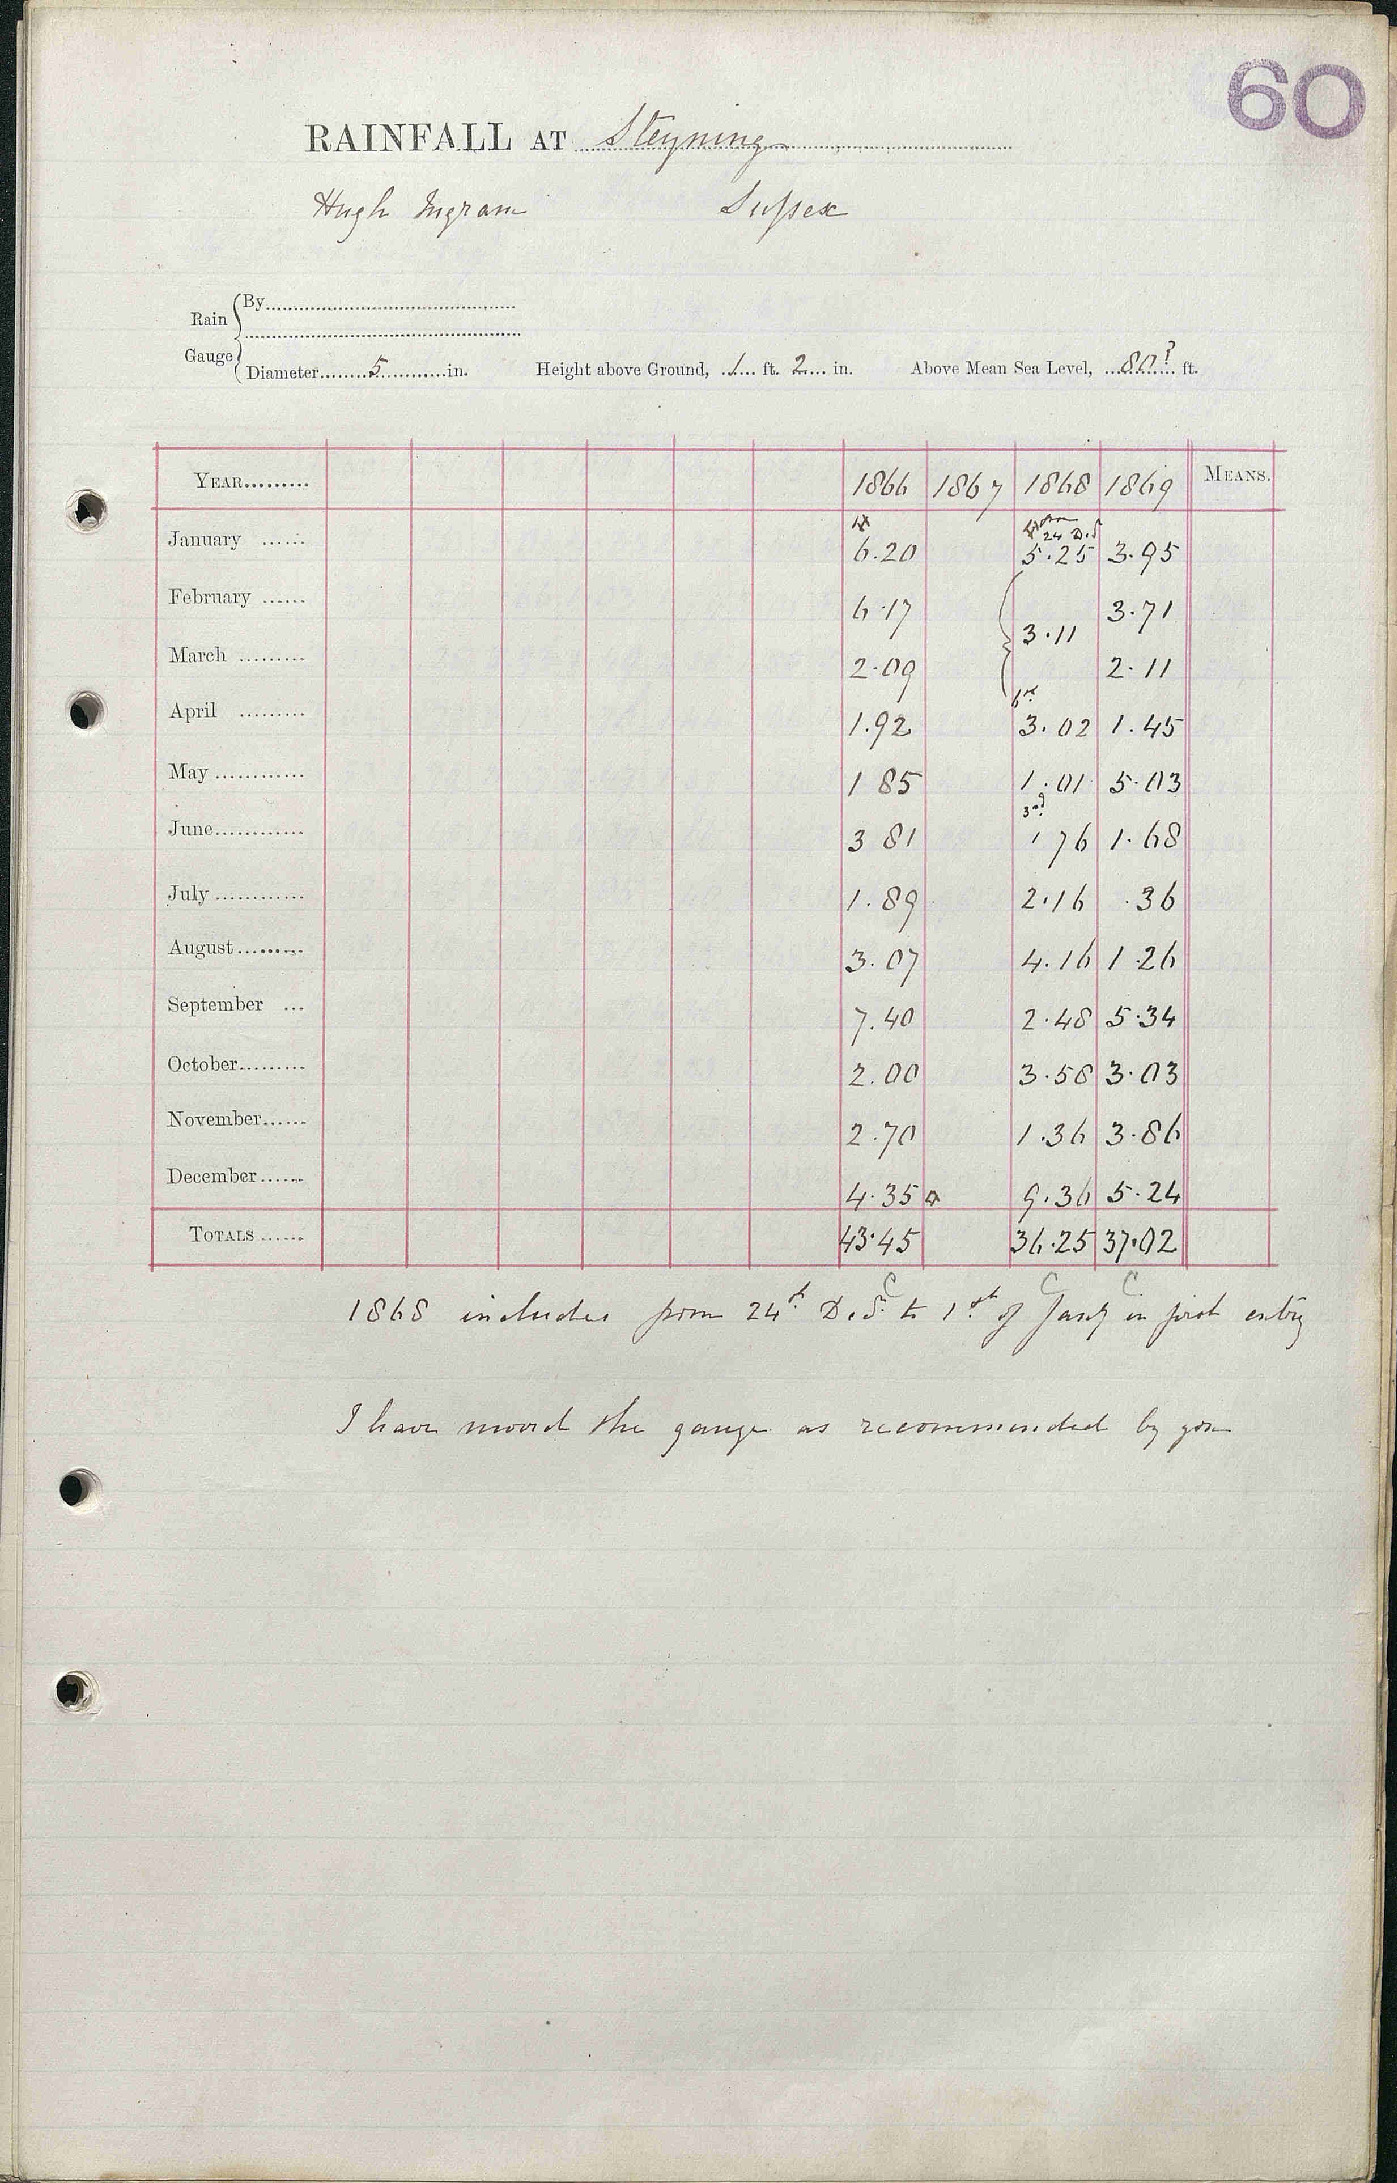 60
RAINFALL AT Steyning
Hugh Ingram Sussex
Rain Gauge
By
Diameter 5 in. Height above Ground, 1 ft. 2 in. Above Mean Sea Level, 80? ft.
YEAR 1866 1867 1868 1869 MEANS.
from
24 Dec
January 6.20 5.25 3.95
February 6.17 3.71
3.11
March 2.09 2.11
April 1.92 3.02 1.45
May 1 85 1.01 5.03
3rd
June 3 81 1 76 1.68
July 1.89 2.16 .36
August 3.07 4.16 1.26
September 7.40 2.48 5.34
October 2.00 3.58 3.03
November 2.70 1.36 3.86
December 4.35 9.36 5.24
TOTALS 43.45 36.25 37.02
C C C
1868 includes from 24th Dec to 1st of Jany in first entry
I have moved the gauge as recommended by you